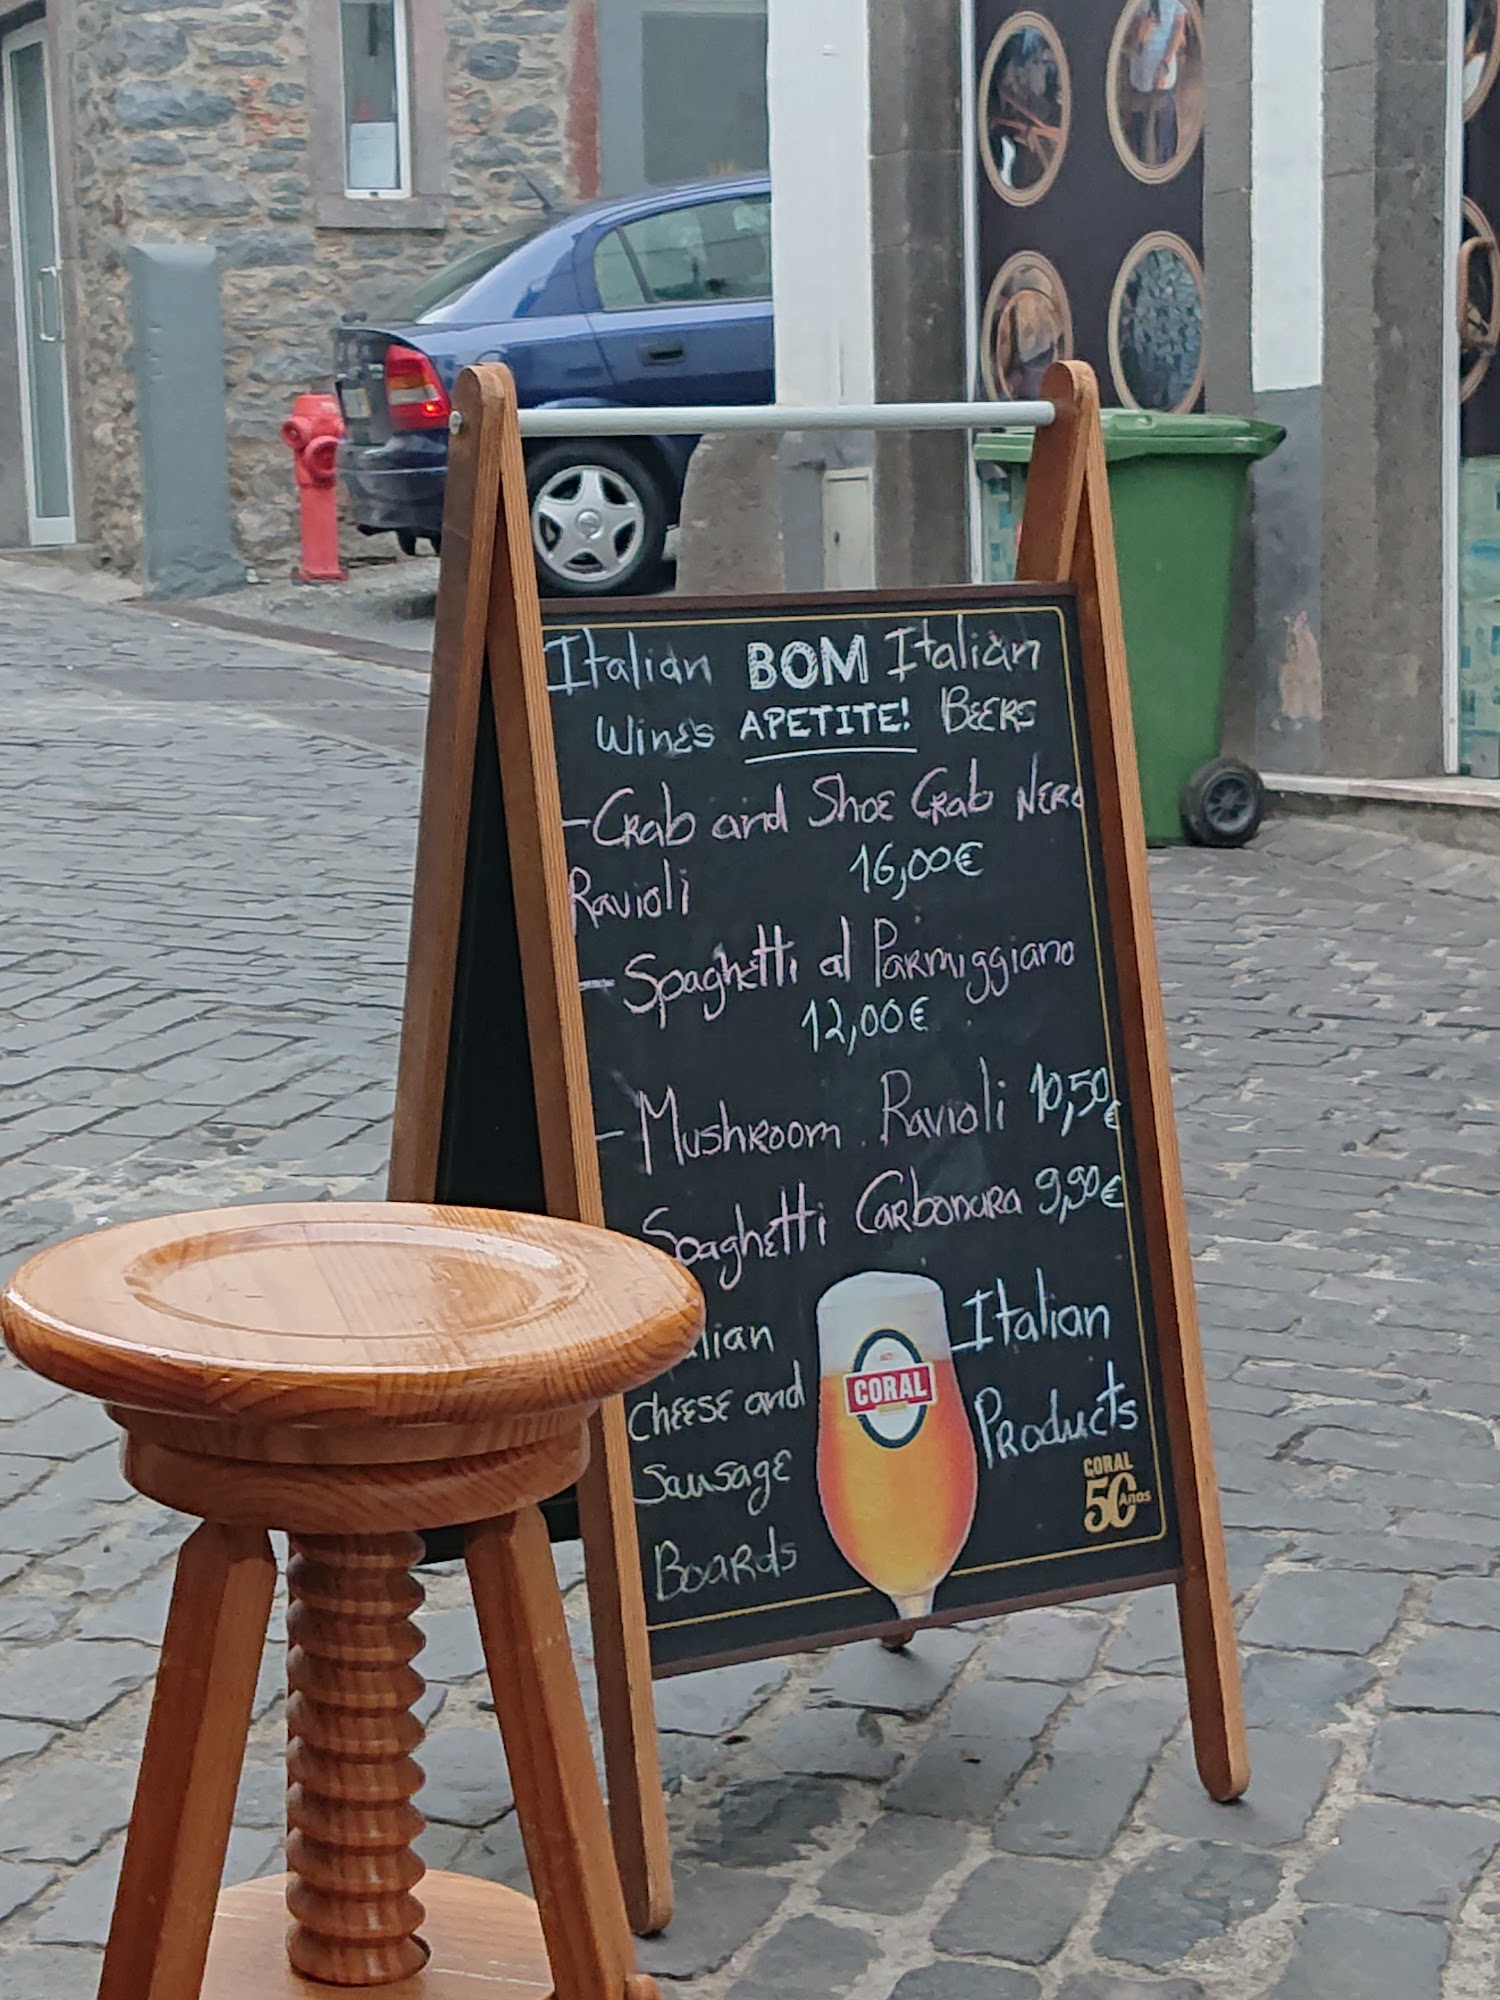 Italian BOM Italian
Wines APETITE! BEERS
-Crab and Shoe Crab Nero
Ravioli 16,00€
- Spaghetti al Parmiggiano
12,00€
- Mushroom Ravioli 10,50€
Spaghetti Carbonara 9,90€
Italian
Products
Cheese and
Sausage
Boards
CORAL
CORAL
50
Anos